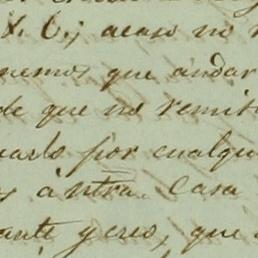 X. C.; acaso no
nemos que andar
de que no remit
uarlo por cualqu
á ntra. Casa
ante y creo, que